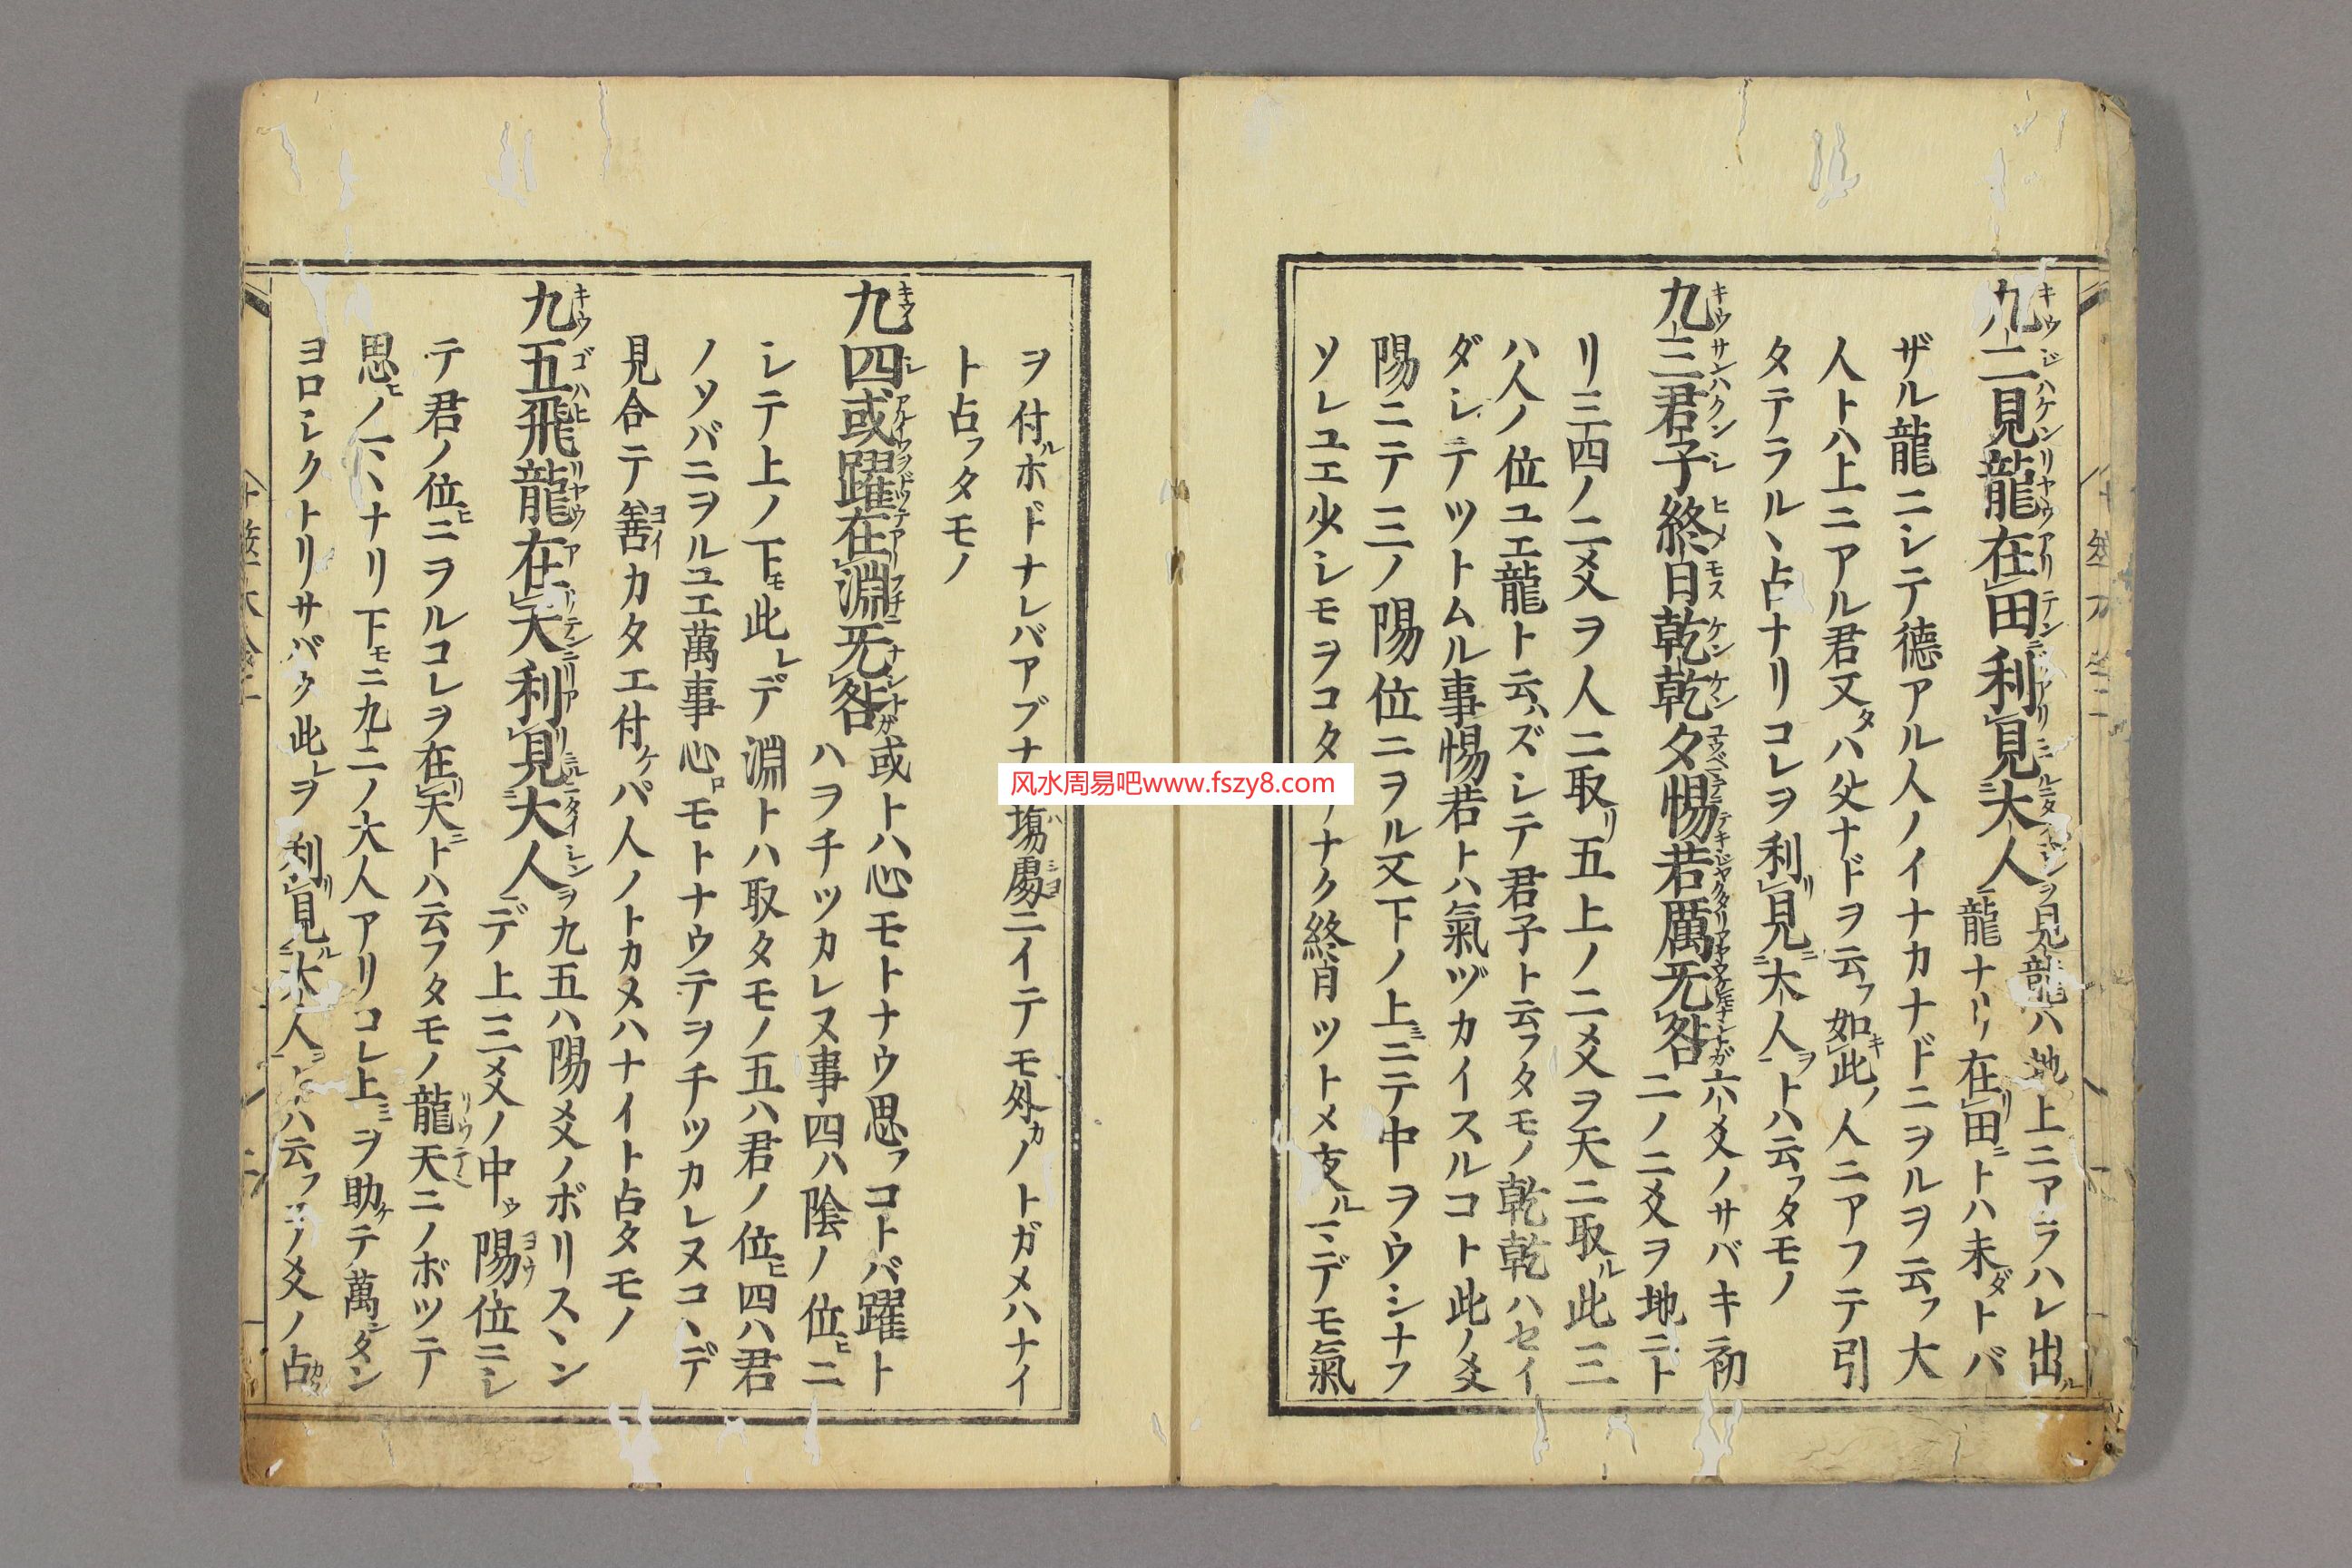 九二見龍在田利見大人 見龍ハ地上ニアラハレ出ル
龍ナリ在田トハ未ダトバ
ザル龍ニシテ德アル人ノイナカナドニヲルヲ云フ大
人トハ上ニアル君又ハ父ナドヲ云フ如此ノ人ニアフテ引
タテラルヽ占ナリコレヲ利見大人トハ云フタモノ
九三君子終日乾乾夕惕若厲无咎 六爻ノサバキ初
二ノ二爻ヲ地ニト
リ三四ノ二爻ヲ人ニ取リ五上ノ二爻ヲ天ニ取ル此三
ハ人ノ位ユエ龍ト云ハズシテ君子ト云フタモノ乾乾ハセイ
ダシテツトムル事惕若トハ氣ヅカイスルコト此ノ爻
陽ニテ三ノ陽位ニヲル又下ノ上ニテ中ヲウシナフ
ソレユエ少シモヲコタナク終日ツトメデモ氣
ヲ付ルホドナレバアブナ塲處ニイテモ外ノトガメハナイ
ト占フタモノ
九四或躍在淵无咎 或トハ心モトナウ思フコトバ躍ト
ハヲチツカレヌ事四ハ陰ノ位ニ
シテ上ノ下モ此レデ淵トハ取タモノ五ハ君ノ位四ハ君
ノソバニヲルユエ萬事心モトナウテヲチツカレヌコヽデ
見合テ善イカタエ付ケバ人ノトカメハナイト占タモノ
九五飛龍在天利見大人 九五ハ陽爻ノボリスヽン
デ上三爻ノ中ウ陽位ニシ
テ君ノ位ニヲルコレヲ在天トハ云フタモノ龍天ニノボツテ
思ヒノマヽナリ下モニ九二ノ大人アリコレ上ヲ助ケテ萬タン
ヨロシクトリサバク此レヲ利見大人トハ云フ爻ノ占
风水周易吧www.fszy8.com